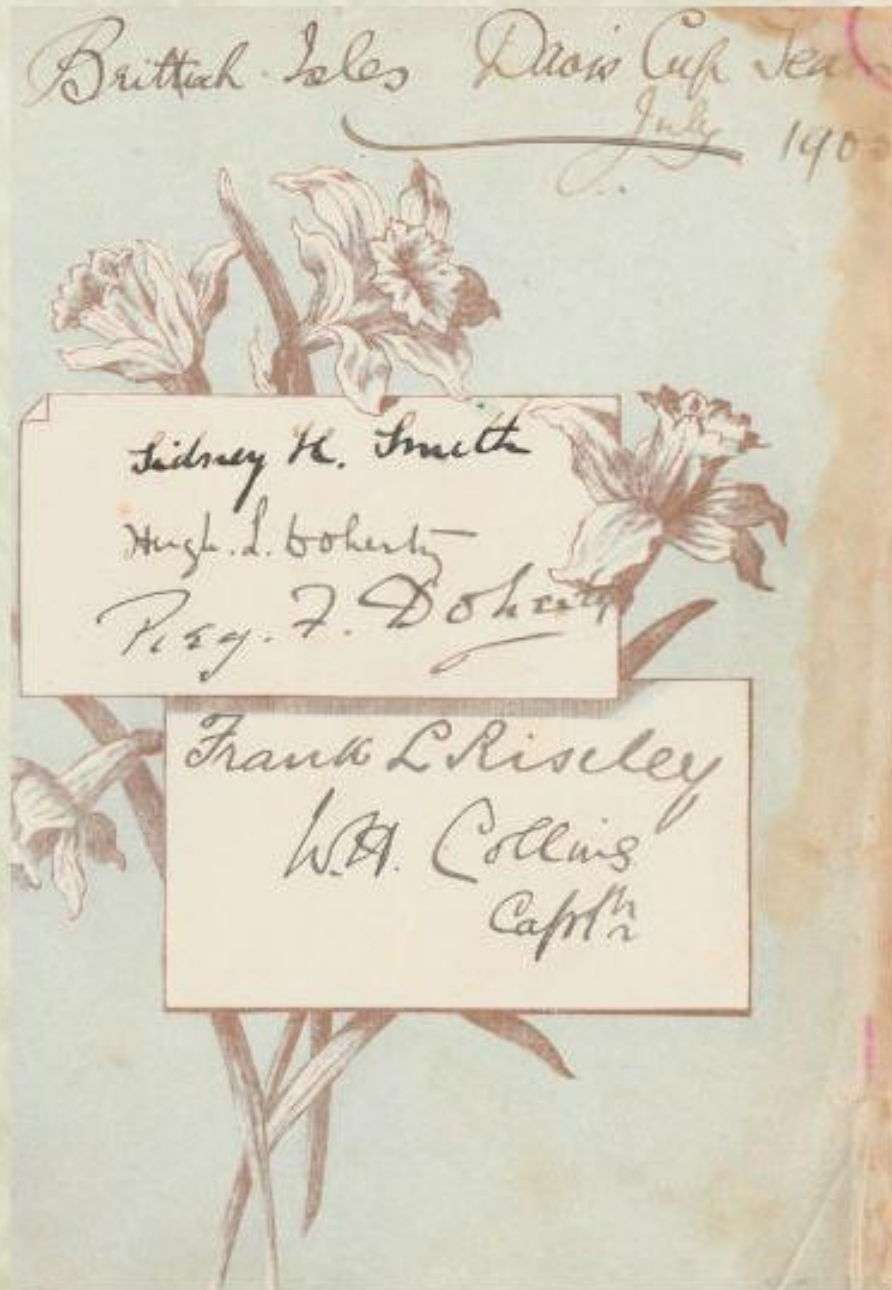 Brittish Isles Davis Cup Team
July
Sidney H. Smith
Hugh. L. Doherty
Reg. F. Doherty
Frank L Riseley
W.H. Collins
Captn